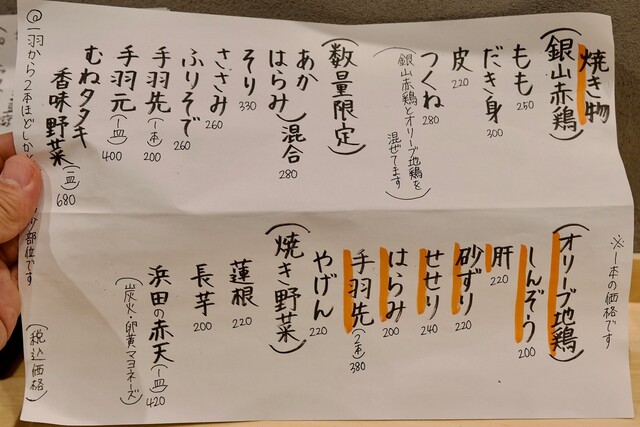 焼き物
(銀山赤鶏)
もも 250
だき身 300
皮 220
つくね 280
(銀山赤鶏とオリーブ地鶏を
混ぜてます)
(数量限定)
あか
はらみ 混合 280
そり 330
ささみ 260
ふりそで 260
手羽先(1本) 200
手羽元(一皿) 400
むねタタキ
香味野菜(一皿) 680
@一羽から2本ほどしか
部位です
※一本の価格です
(オリーブ地鶏)
しんぞう 200
肝 220
砂ずり 220
せせり 240
はらみ 200
手羽先(2本) 380
やげん 220
(焼き野菜)
蓮根 220
長芋 200
浜田の赤天(一皿) 420
(炭火・卵黄マヨネーズ)
(税込価格)